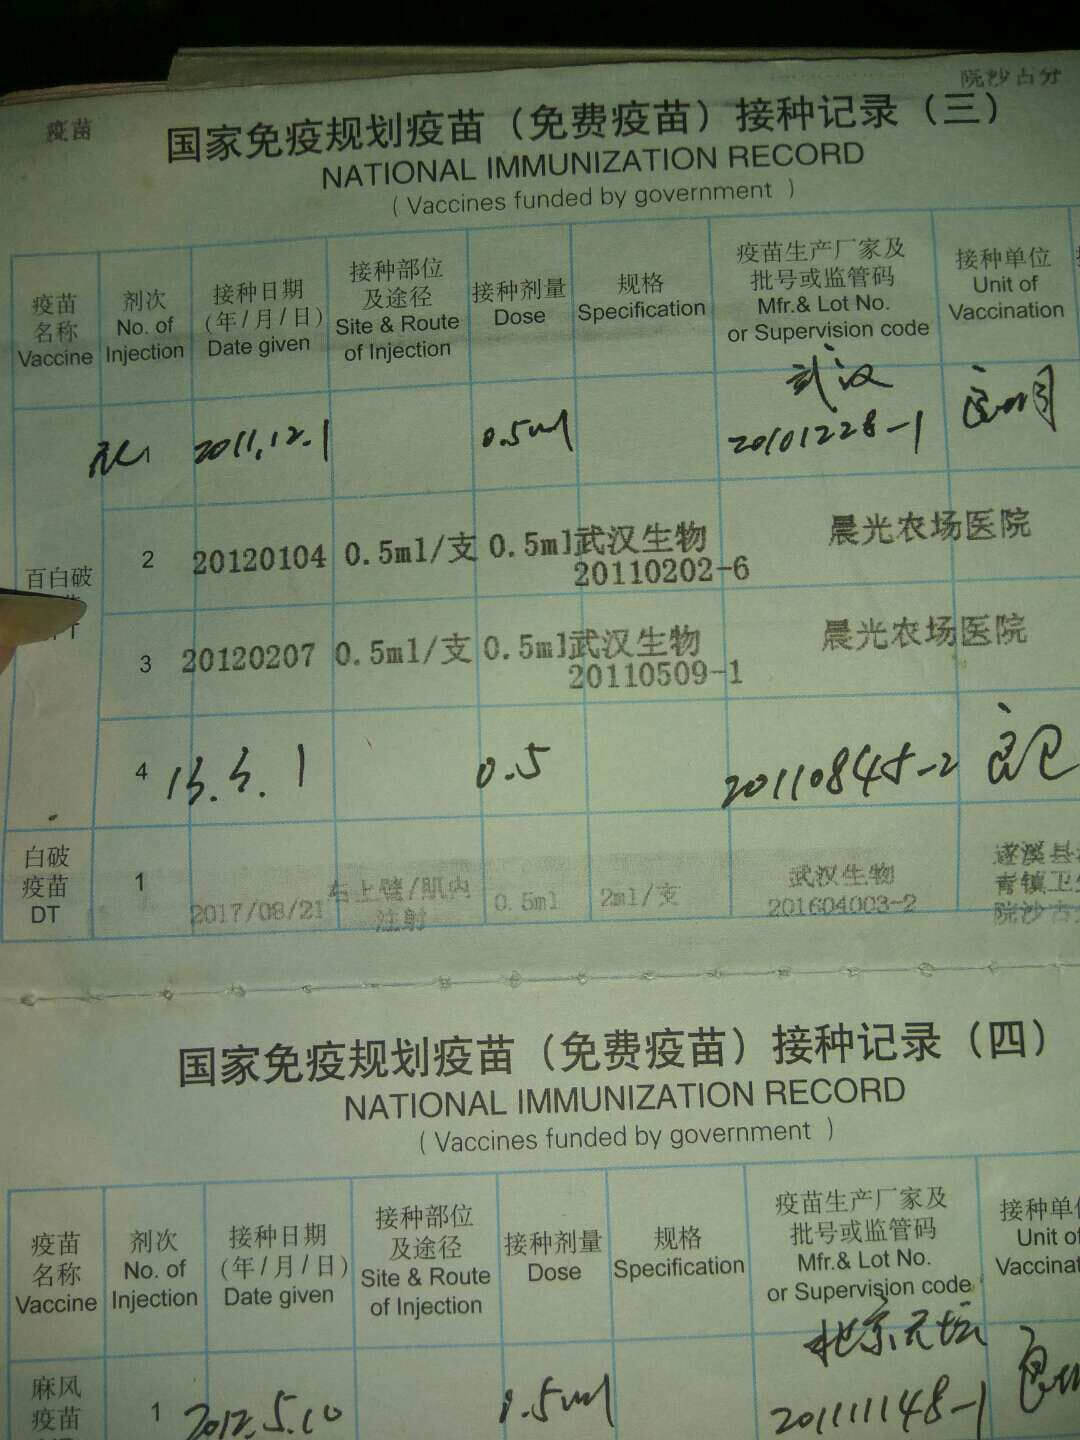 院沙古分
疫苗
国家免疫规划疫苗（免费疫苗）接种记录（三）
NATIONAL IMMUNIZATION RECORD
( Vaccines funded by government )
疫苗
名称
Vaccine
剂次
No. of
Injection
接种日期
(年/月/日)
Date given
接种部位
及途径
Site & Route
of Injection
接种剂量
Dose
规格
Specification
疫苗生产厂家及
批号或监管码
Mfr.& Lot No.
or Supervision code
接种单位
Unit of
Vaccination
百白破
1 2011.12.1 0.5ml 武汉
20101228-1
2 20120104 0.5ml/支 0.5ml 武汉生物 晨光农场医院
20110202-6
3 20120207 0.5ml/支 0.5ml 武汉生物 晨光农场医院
20110509-1
4 13.3.1 0.5 20110845-2
白破
疫苗
DT
1 2017/08/21 右上臂/肌内
注射
0.5ml 2ml/支 武汉生物
201604003-2
遂溪县
青镇卫生
院沙古
国家免疫规划疫苗（免费疫苗）接种记录（四）
NATIONAL IMMUNIZATION RECORD
( Vaccines funded by government )
疫苗
名称
Vaccine
剂次
No. of
Injection
接种日期
(年/月/日)
Date given
接种部位
及途径
Site & Route
of Injection
接种剂量
Dose
规格
Specification
疫苗生产厂家及
批号或监管码
Mfr.& Lot No.
or Supervision code
接种单
Unit of
Vaccinat
麻风
疫苗
1 2012.5.10 0.5ml 北京天坛
201111148-1